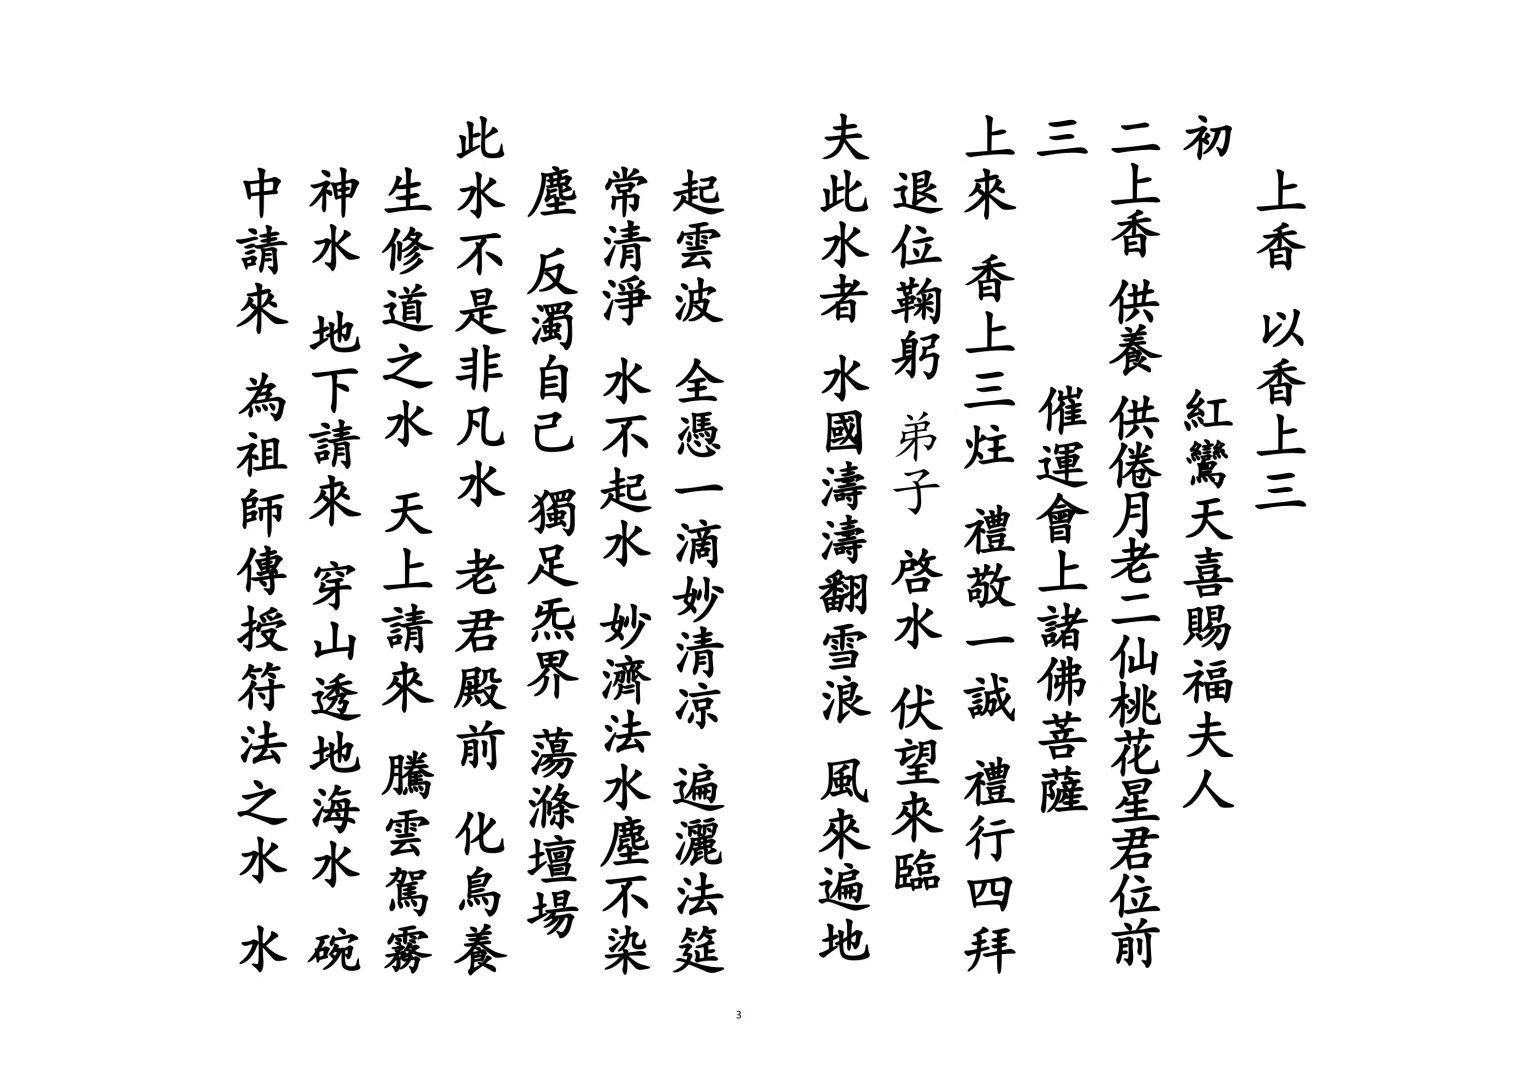 上香 以香上三
初 紅鸞天喜賜福夫人
二上香 供養 供倦月老二仙桃花星君位前
三 催運會上諸佛菩薩
上來 香上三炷 禮敬一誠 禮行四拜
退位鞠躬 弟子 啓水 伏望來臨
夫此水者 水國濤濤翻雪浪 風來遍地
起雲波 全憑一滴妙清凉 遍灑法筵
常清淨 水不起水 妙濟法水塵不染
塵 反濁自己 獨足炁界 蕩滌壇場
此水不是非凡水 老君殿前 化鳥養
生修道之水 天上請來 騰雲駕霧
神水 地下請來 穿山透地海水 碗
中請來 為祖師傳授符法之水 水
3